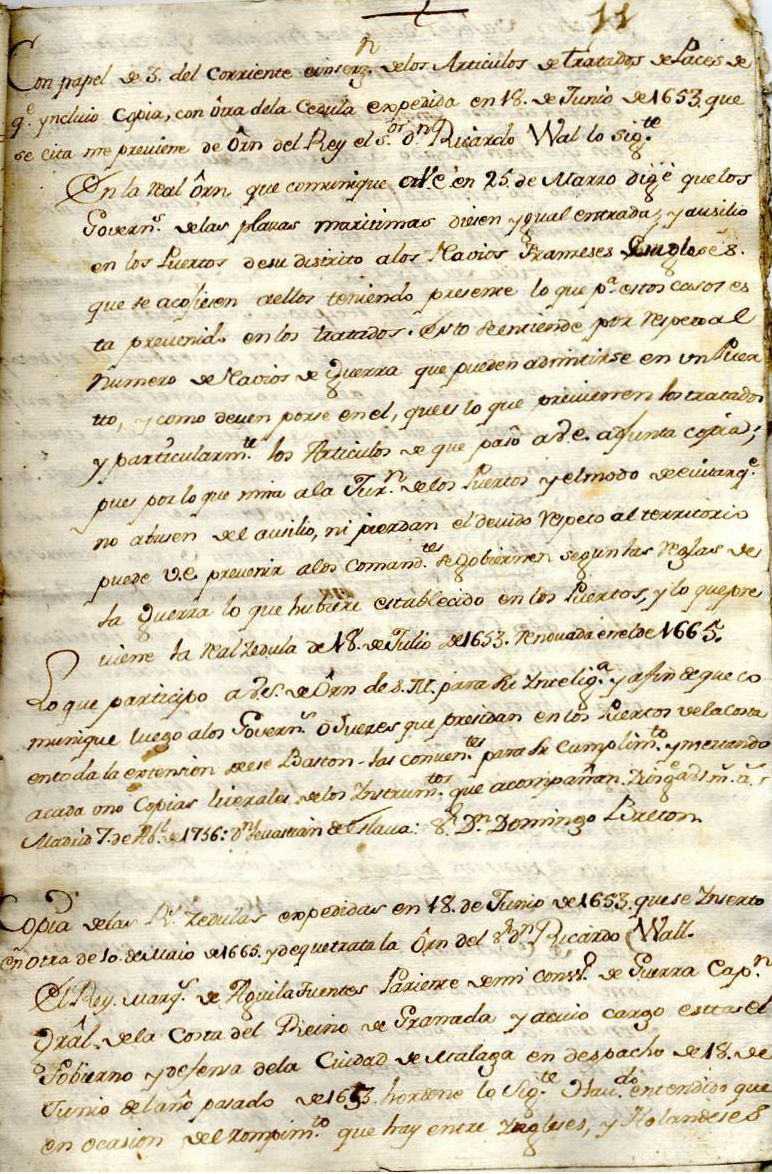 11
Con papel de 3. del Corriente einserz.n delos Articulos de tratados de Paces de
q.e yncluio Copia, con ôtra dela Cedula expedida en 18. de Junio de 1653. que
se cita me previene de Ôrn del Rey el s.or d.n Ricardo Wal lo sig.te
En la real Ôrn que comunique a V.e en 25. de Marzo digê que los
Govern.s delas plazas maritimas diesen ygual entrada, y ausilio
en los Puertos desu distrito alos Navios Franceses Yngleses.
que se acojiesen aellos teniendo presente lo que p.a estos casos es
ta prevenido en los tratados. Esto seentiende por respeto al
numero de Navios de Guerra que pueden admitirse en un Puer
tto, y como deven porse en el, que es lo que previenen los tratados
y particularm.te los Articulos de que paso a v.e. adjunta copia;
pues por lo que mira ala Jur.n delos Puertos y elmodo de evitar q.e
no abusen del ausilio, ni pierdan el devido respeto al territorio
puede v.e. prevenir alos Comand.tes segobiernen segun las reglas de
la guerra lo que hubiere establecido en los Puertos, y lo que pre
viene la real Zedula de 18. de Julio de 1653. renovada enelde 1665.
Lo que participo a V.S. de Ôrn de S.M. para su Intelig.a y afin de que co
munique luego alos Govern.s o Jueces que presidan en los Puertos dela Costa
entoda la extension de ese Baston las conven.tes para su Cumplim.to y mettando
acada uno Copias literales delos Instrum.tos que acompañan. Dios g.e a
Madrid 7. de Ab.l de 1756: D.n Sevastian de Eslava: S.r D.n Domingo Breton.
Copia delas R.s Zedulas expedidas en 18. de Junio de 1653. que se Inserto
en otra de 10. de Maio de 1665. y de que trata la Ôrn del S.or d.n Ricardo Wall.
El Rey. Marq.s de Aguila Fuentes Pariente demi cons.o de Guerra Cap.n
Grâl. dela Costa del Reino de Granada y acuio cargo estta el
Gobierno y defensa dela Ciudad de Malaga en despacho de 18. de
Junio del año pasado de 1653. hordene lo Sig.te Hav.do entendido que
en ocasion del rompim.to que hay entre Yngleses, y Holandeses